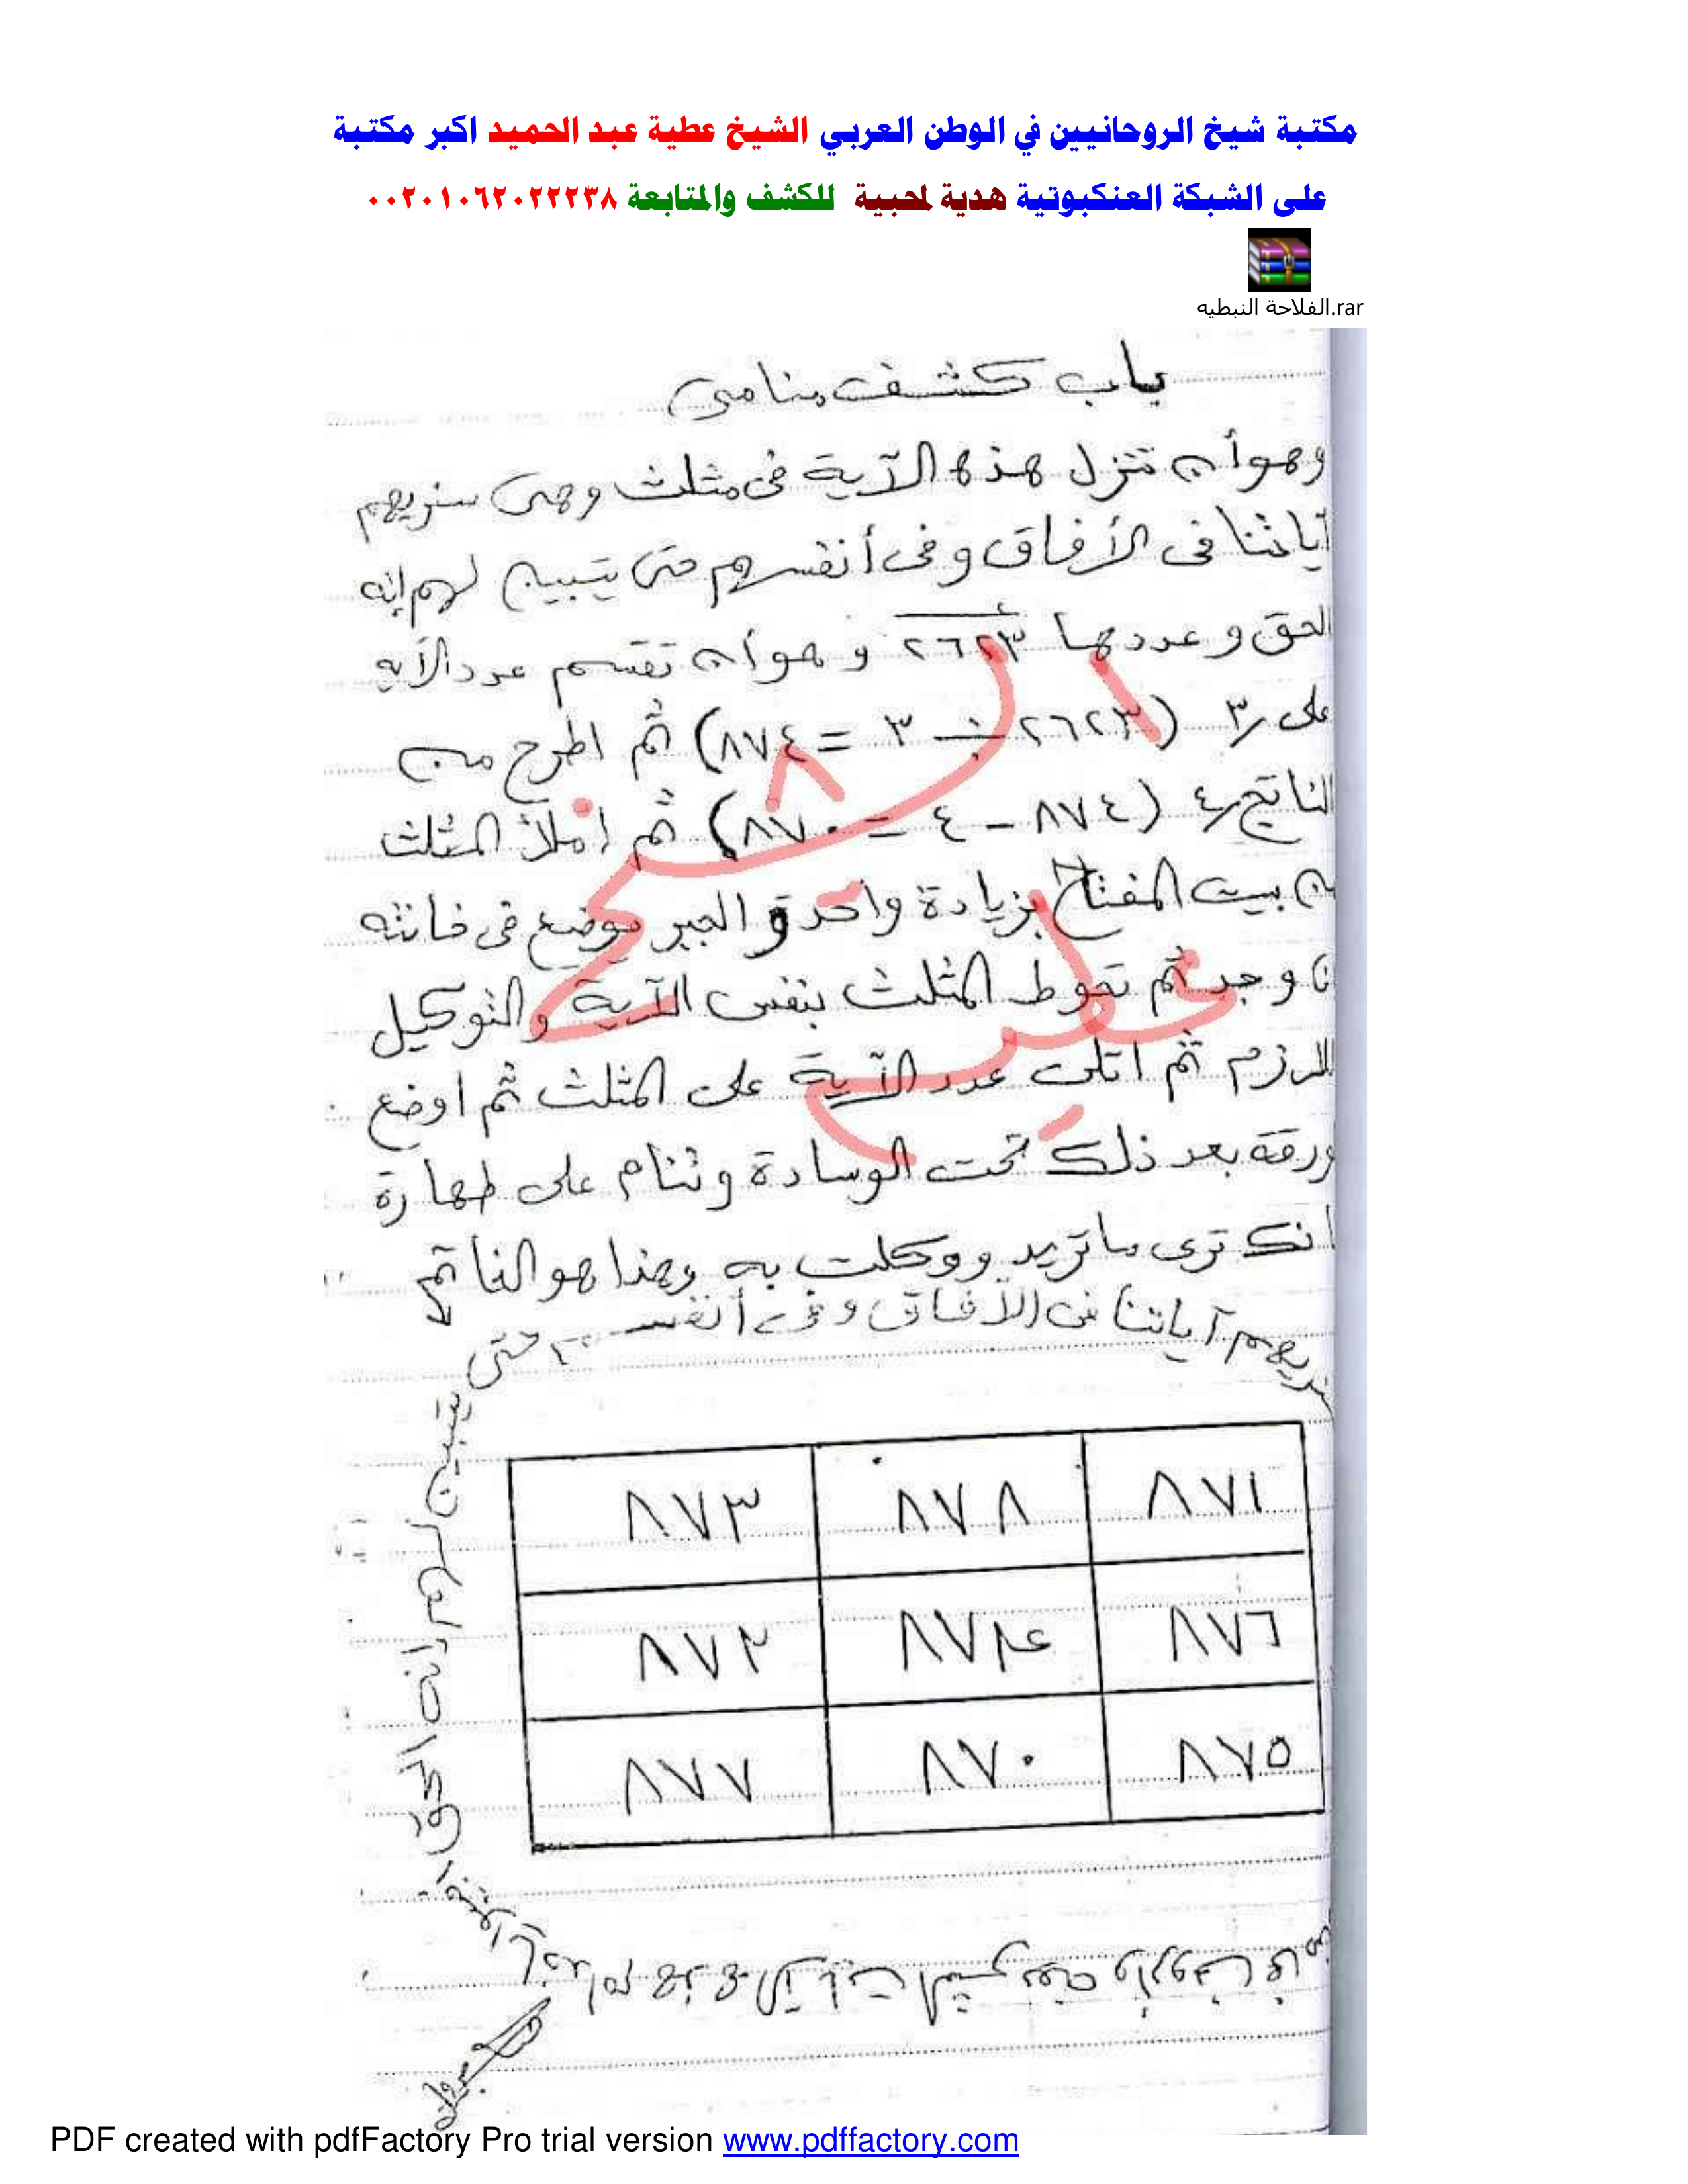 مكتبة شيخ الروحانيين في الوطن العربي الشيخ عطية عبد الحميد اكبر مكتبة
على الشبكة العنكبوتية هدية لمحبية للكشف والمتابعة ٠٠٢٠١٠٦٢٠٢٢٢٣٨
الفلاحة النبطيه.rar
باب كشف منامى
وهو أن تنزل هذه الآية فى مثلث وهى سنريهم
آياتنا فى الأفاق وفى أنفسهم حتى يتبين لهم إنه
الحق وعددها ٢٦٢٣ وهو أن تقسم عدد الآيه
على ٣ (٢٦٢٣ ÷ ٣ = ٨٧٤) ثم اطرح من
الناتج ٤ (٨٧٤ - ٤ = ٨٧٠) ثم املأ المثلث
من بيت المفتاح بزيادة واحد و الجبر يوضع فى خانته
وجد ثم تحوط المثلث بنفس الآية والتوكيل
اللازم ثم اتلى عدد الآية على المثلث ثم اوضع
ورقة بعد ذلك تحت الوسادة وتنام على طهارة
انك ترى ما تريد ووكلت به وهذا هو الخاتم
سنريهم آياتنا فى الآفاق وفى أنفسهم حتى
يتبين لهم إنه الحق
٨٧١ ٨٧٨ ٨٧٣
٨٧٦ ٨٧٤ ٨٧٢
٨٧٥ ٨٧٠ ٨٧٧
PDF created with pdfFactory Pro trial version www.pdffactory.com